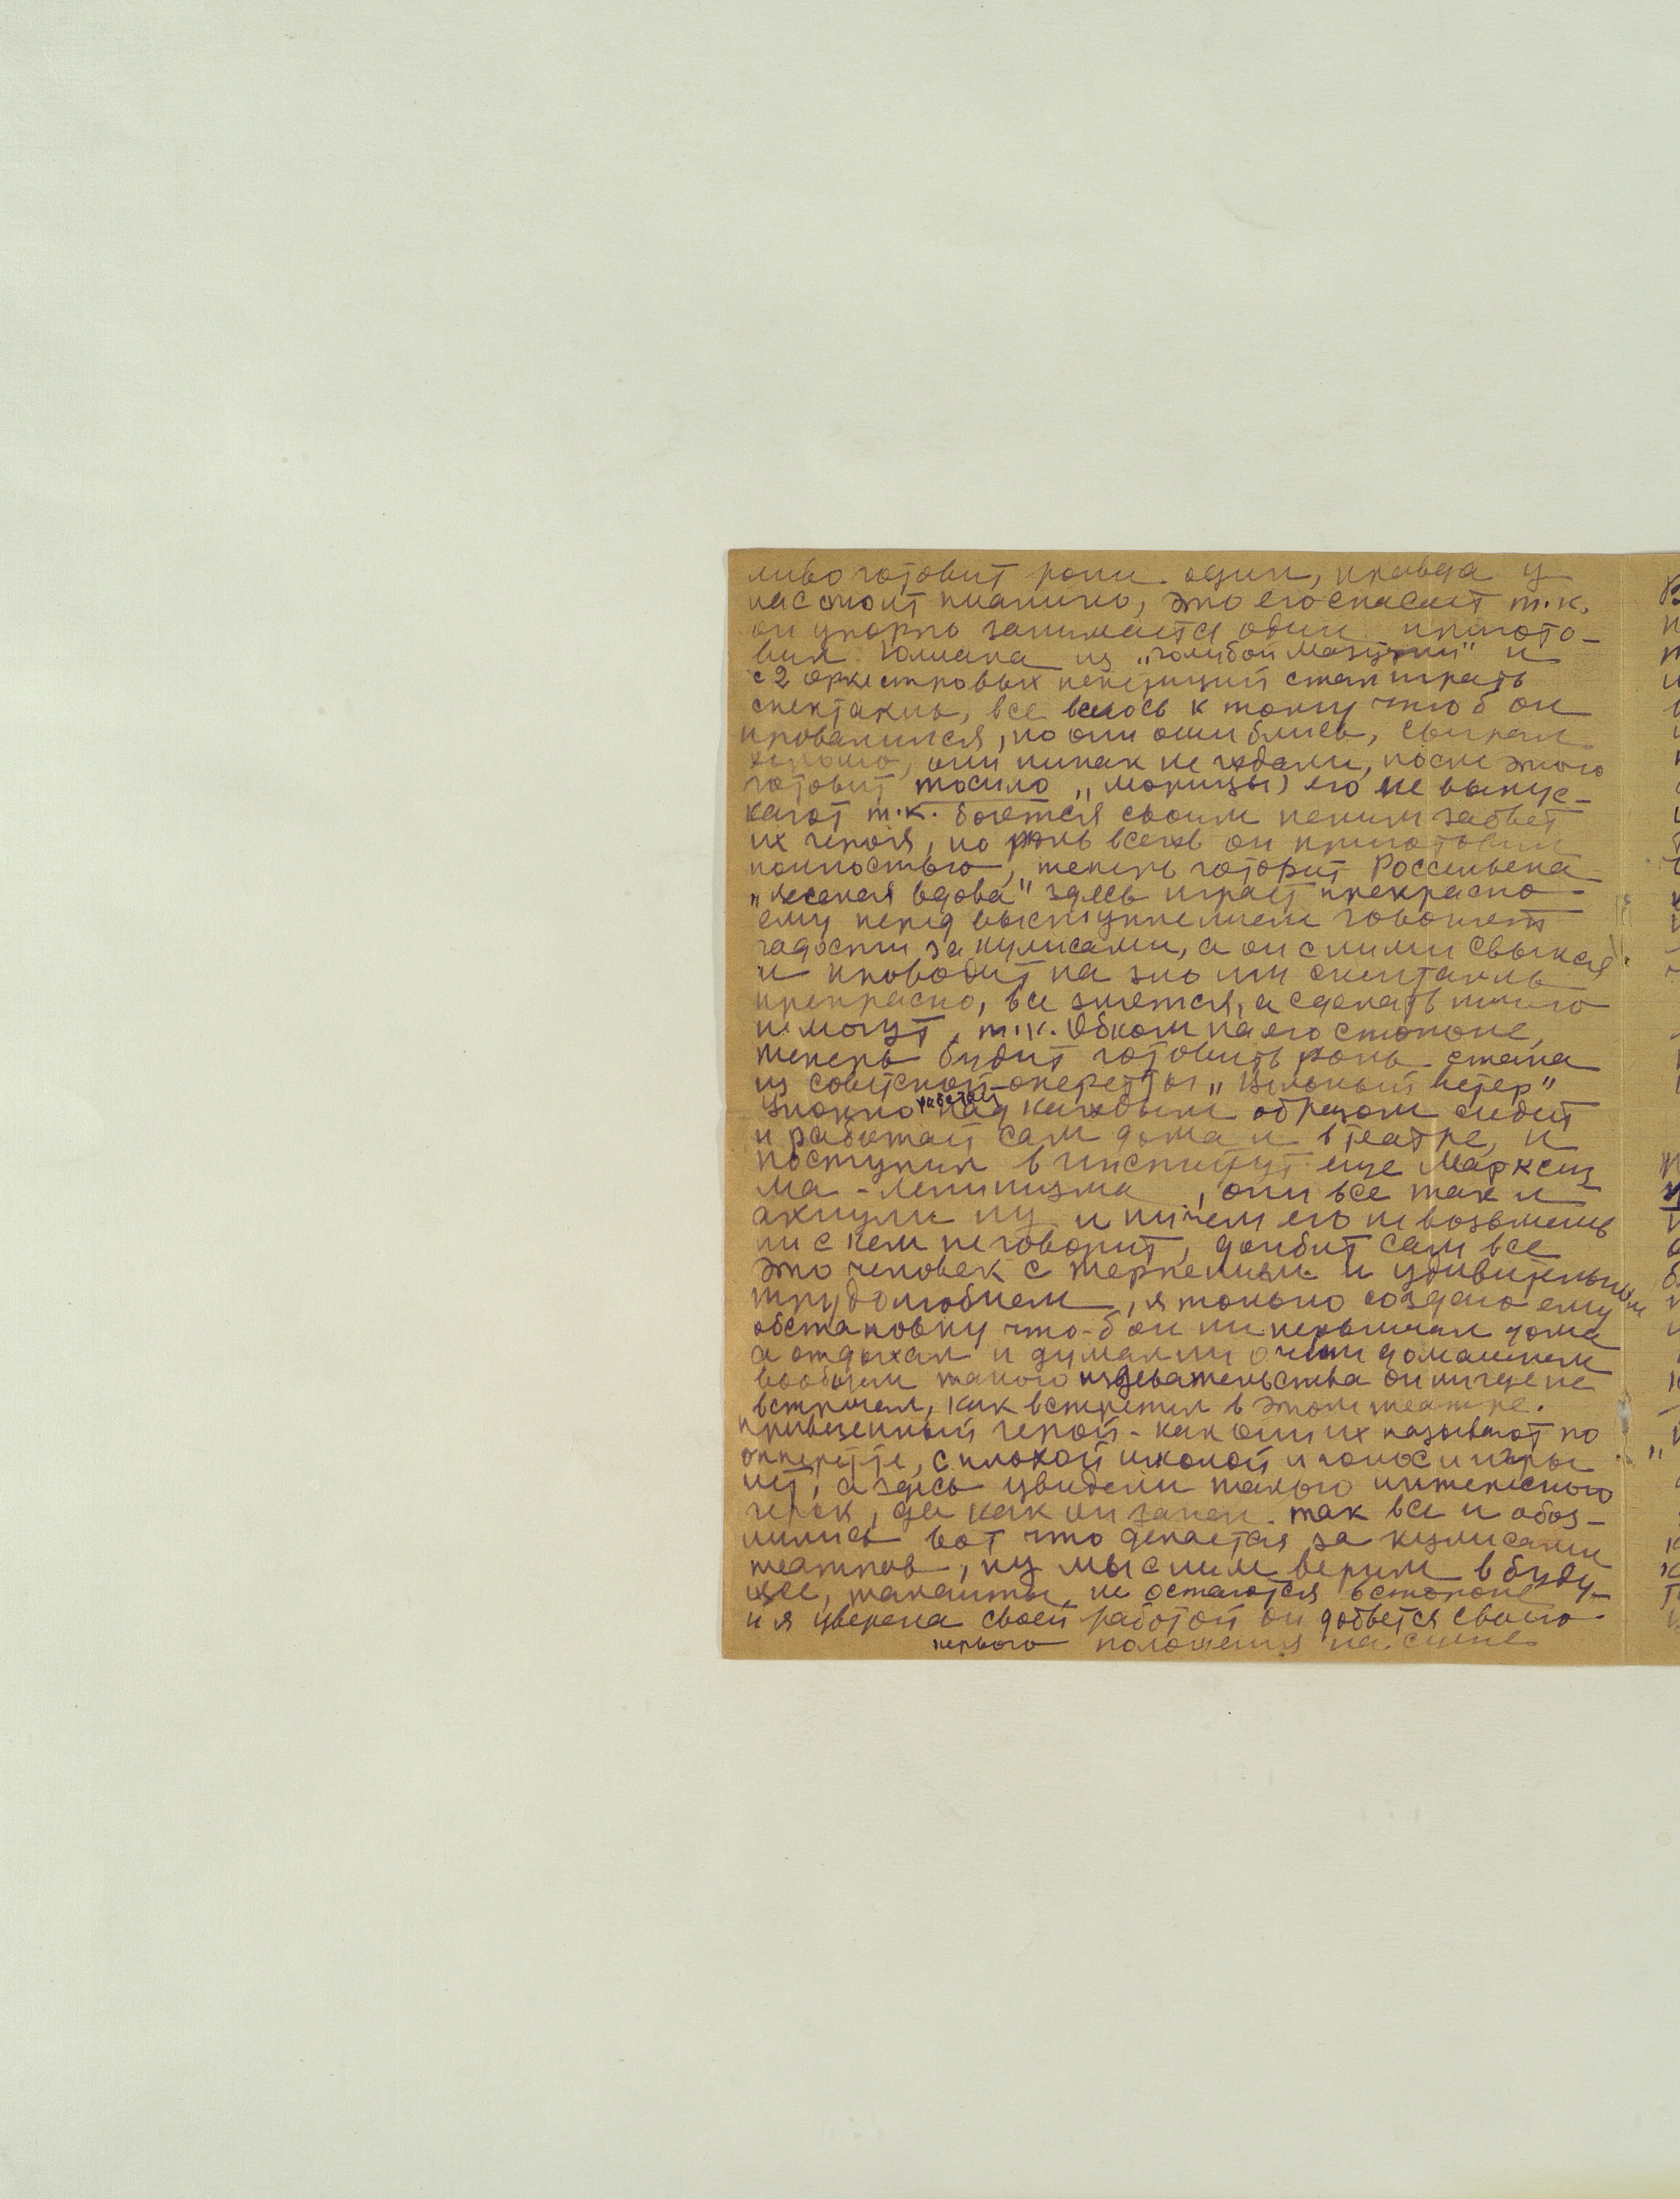 ливо готовит роли один, правда у
нас стоит пианино, это его спасает т.к.
он упорно занимается один пригото-
вил Юлиана из „голубой Мазурки" и
с 2 оркестровых репетиций стал играть
спектакль, все велось к тому чтоб он
провалился, но они ошиблись, сыграл
хорошо, они никак не ждали, после этого
готовит тасило „морицы) его не выпус-
кают т.к. боятся своим пением забьет
их героя, но роль всеж он приготовил
полностью, теперь готовит Россильона
„веселая вдова" здесь играет прекрасно
ему перед выступлением говорят
гадости за кулисами, а он с ними свыкся
и проводит на зло им спектакль
прекрасно, все злятся, а сделать ничего
не могут, т.к. Обком на его стороне,
теперь будит готовить роль стека
из советской оперетты „Вольный ветер"
Сложно работает над каждым образом сидит
и работает сам дома и в театре, и
поступил в институт еще Марксиз
ма-ленинизма, они все так и
ахнули ну и ничем его не возьмешь
ни с кем не говорит, долбит сам все
это человек с терпением и удивительным
трудолюбием, я только создаю ему
обстановку что-б он ни нервничал дома
а отдыхал и думал ни о чем домашнем
вообщем такого издевательства он нигде не
встречал, как встретил в этом театре.
привезенный герой - как они их называют по
опперетте, с плохой школой и голос и игры
нет, а здесь увидели такого интересного
герок, да как он запел так все и обоз-
лились вот что делается за кулисами
театров, ну мы с ним верим в буду-
щее, таланты не остаются в стороне
и я уверена своей работой он добьется своего
первого положения на сцене